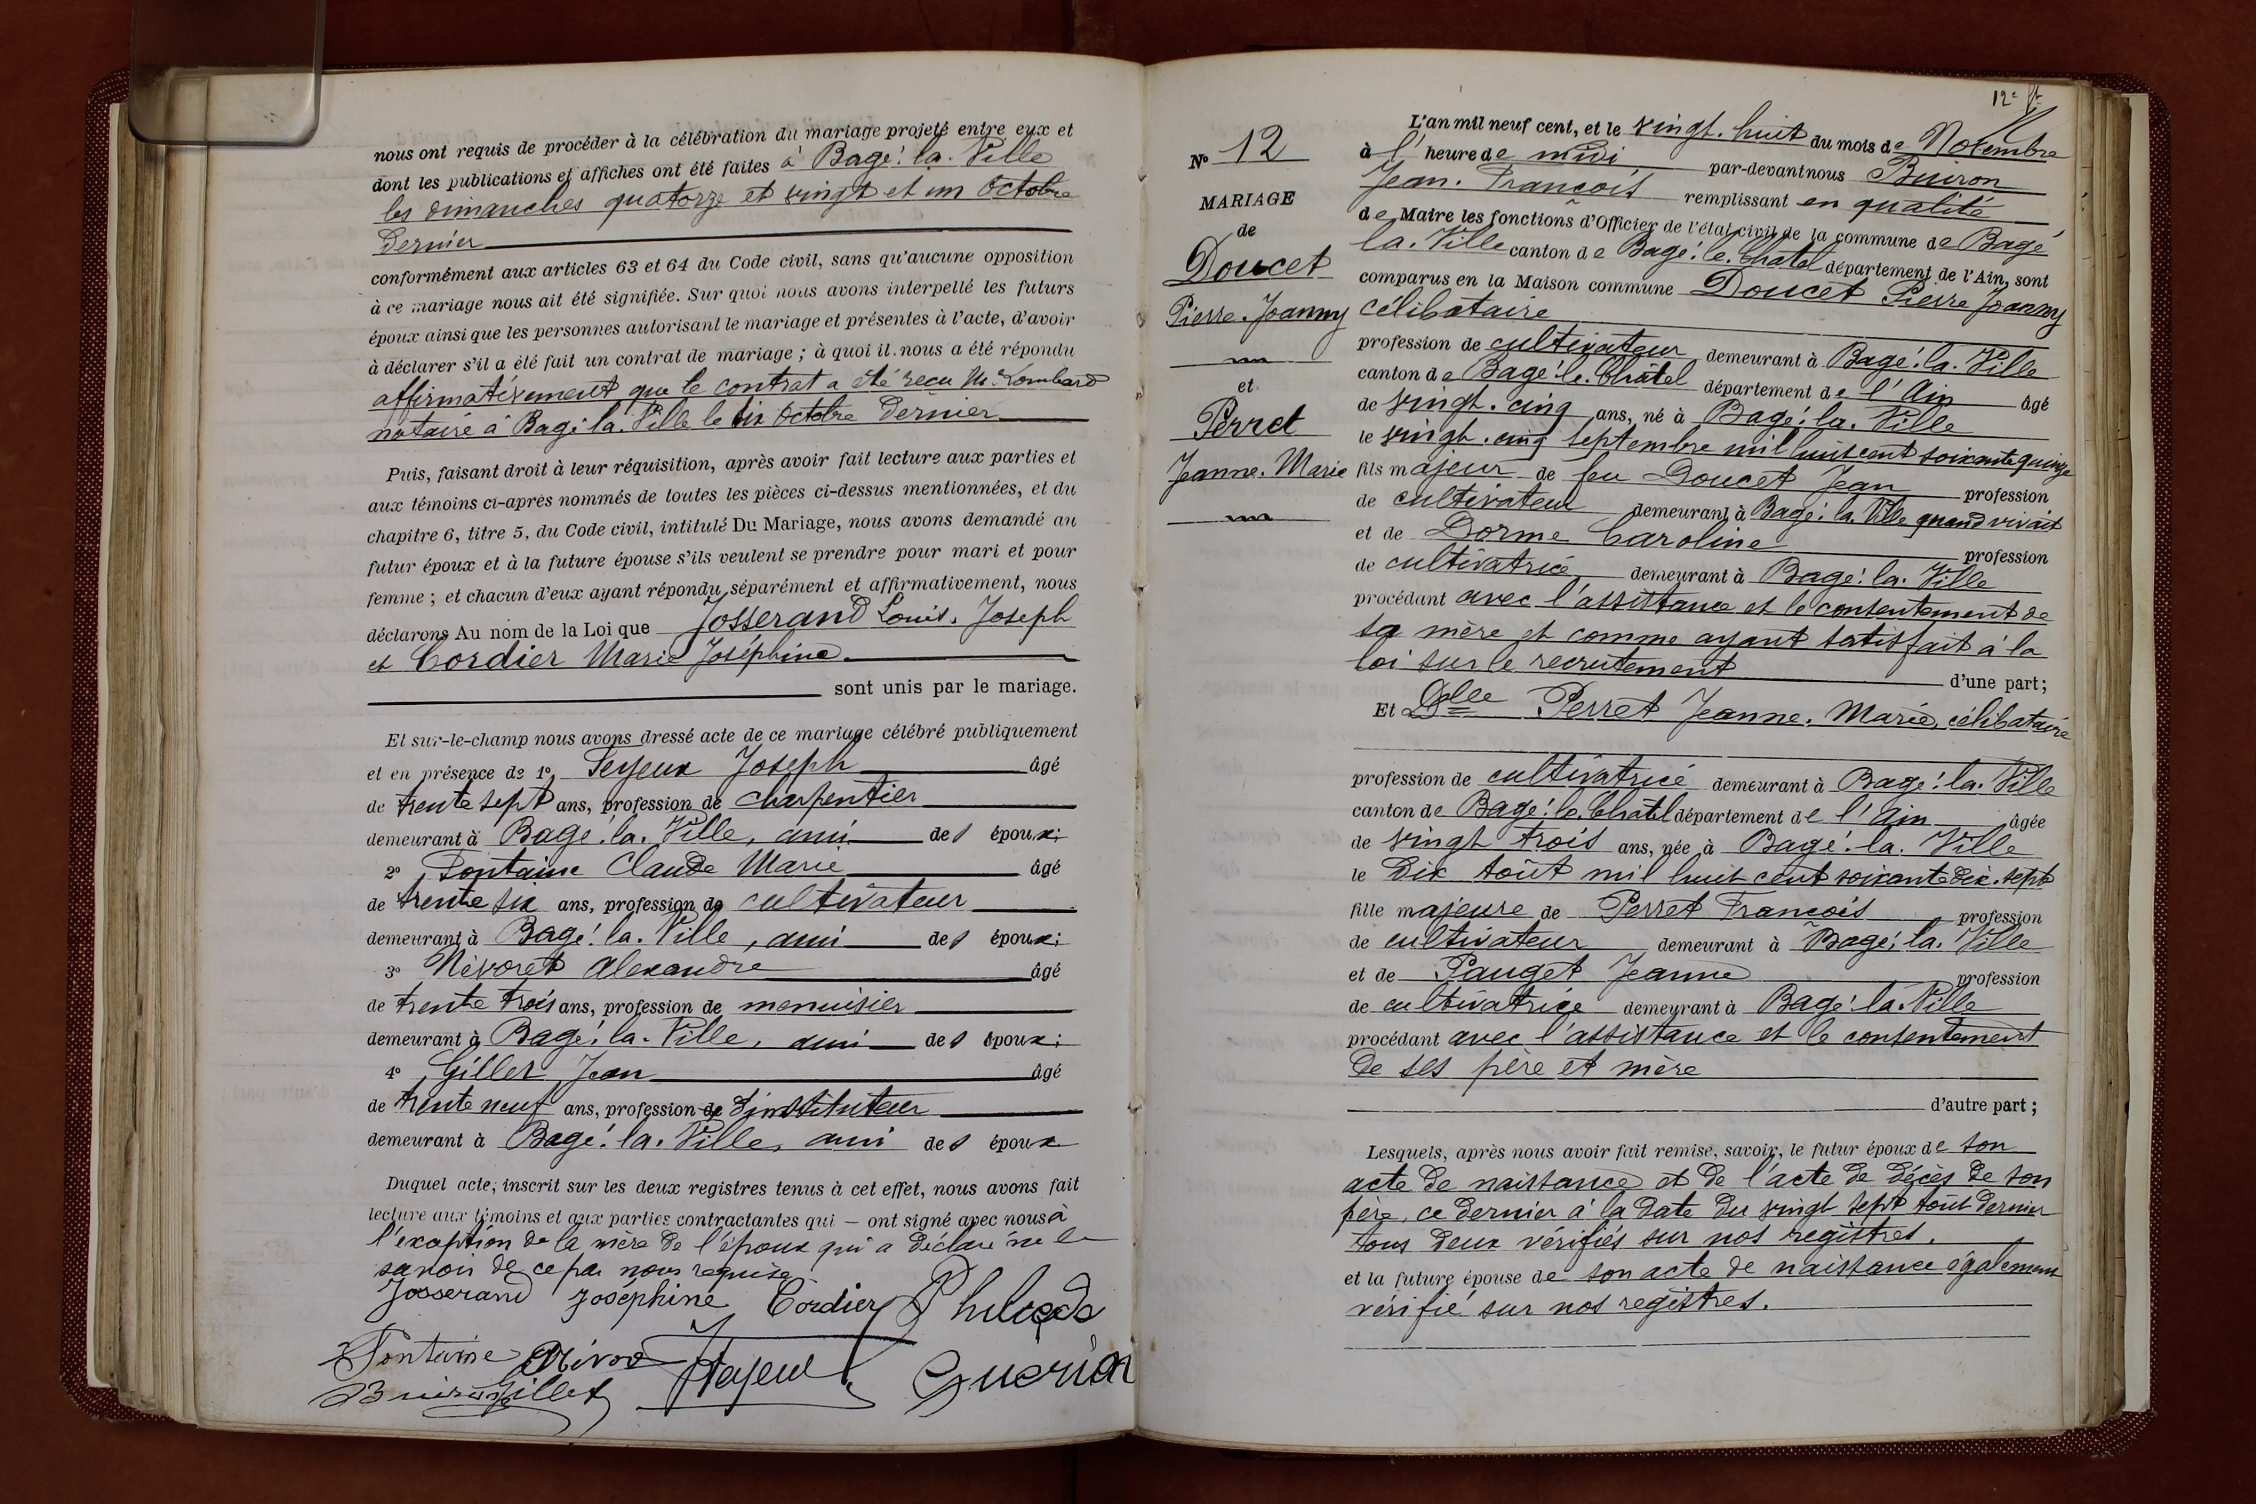 nous ont requis de procéder à la célébration du mariage projeté entre eux et
dont les publications et affiches ont été faites à Bagé. la. Ville
les dimanches quatorze et vingt et un Octobre
Dernier
conformément aux articles 63 et 64 du Code civil, sans qu'aucune opposition
à ce mariage nous ait été signifiée. Sur quoi nous avons interpellé les futurs
époux ainsi que les personnes autorisant le mariage et présentes à l'acte, d'avoir
à déclarer s'il a été fait un contrat de mariage ; à quoi il nous a été répondu
affirmativement que le contrat a été reçu Me Lombard
notaire à Bagé la. Ville le six Octobre Dernier
Puis, faisant droit à leur réquisition, après avoir fait lecture aux parties et
aux témoins ci-après nommés de toutes les pièces ci-dessus mentionnées, et du
chapitre 6, titre 5, du Code civil, intitulé Du Mariage, nous avons demandé au
futur époux et à la future épouse s'ils veulent se prendre pour mari et pour
femme ; et chacun d'eux ayant répondu séparément et affirmativement, nous
déclarons Au nom de la Loi que Josserand Louis. Joseph
et Cordier Marie Joséphine
sont unis par le mariage.
Et sur-le-champ nous avons dressé acte de ce mariage célébré publiquement
et en présence de 1º Feyeux Joseph âgé
de trente sept ans, profession de charpentier
demeurant à Bagé. la. Ville, ami des époux;
2º Fontaine Claude Marie âgé
de trente six ans, profession de cultivateur
demeurant à Bagé. la. Ville, ami des époux;
3º Névoret Alexandre âgé
de trente trois ans, profession de menuisier
demeurant à Bagé. la. Ville, ami des époux;
4º Gillet Jean âgé
de trente neuf ans, profession de d'instituteur
demeurant à Bagé. la. Ville, ami des époux
Duquel acte, inscrit sur les deux registres tenus à cet effet, nous avons fait
lecture aux témoins et aux parties contractantes qui – ont signé avec nous à
l'exception de la mère de l'époux qui a déclaré ne le
savoir de ce par nous requise
Josserand Joséphine Cordier
Fontaine
Buiron Gillet Guérin
12e
Nº 12
MARIAGE
de
Doucet
Pierre. Joanny
et
Perret
Jeanne. Marie
L'an mil neuf cent, et le vingt. huit du mois de Novembre
à l'heure de midi par-devant nous Buiron
Jean. François remplissant en qualité
de Maire les fonctions d'Officier de l'état civil de la commune de Bagé
la. Ville canton de Bagé. le. Châtel département de l'Ain, sont
comparus en la Maison commune Doucet Pierre Joanny
célibataire
profession de cultivateur demeurant à Bagé. la. Ville
canton de Bagé. le. Châtel département de l'Ain âgé
de vingt. cinq ans, né à Bagé. la. Ville
le vingt. cinq septembre mil huit cent soixante quinze
fils majeur de feu Doucet Jean profession
de cultivateur demeurant à Bagé. la. Ville quand vivait
et de Dorme Caroline profession
de cultivatrice demeurant à Bagé. la. Ville
procédant avec l'assistance et le consentement de
sa mère et comme ayant satisfait à la
loi sur le recrutement d'une part;
Et Dlle Perret Jeanne. Marie, célibataire
profession de cultivatrice demeurant à Bagé. la. Ville
canton de Bagé. le. Châtel département de l'Ain âgée
de vingt trois ans, née à Bagé. la. Ville
le dix août mil huit cent soixante dix. sept
fille majeure de Perret François profession
de cultivateur demeurant à Bagé. la. Ville
et de Pauget Jeanne profession
de cultivatrice demeurant à Bagé. la. Ville
procédant avec l'assistance et le consentement
de ses père et mère
d'autre part ;
Lesquels, après nous avoir fait remise, savoir, le futur époux de son
acte de naissance et de l'acte de décès de son
père, ce dernier à la date du vingt sept août dernier
tous deux vérifiés sur nos registres.
et la future épouse de son acte de naissance également
vérifié sur nos registres.